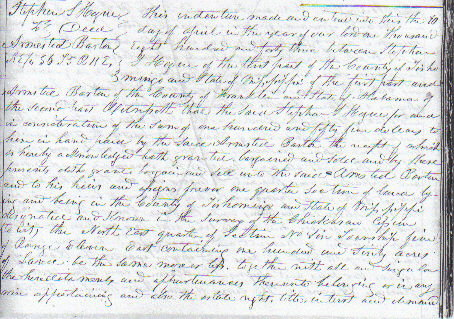 Stephen S Hogue
To Deed
Armsted Barton
This indenture made and entered into this the 10
day of april in the year of our lord one thousand
eight hundred and forty three between Stephen
S Hogue of the first part of the County of Tisho
mingo and State of Mississippi of the first part and
Armsted Barton of the County of Franklin and State of Alabama of
the second part Witnesseth that the said Stephen S Hogue for and
in consideration of the sum of one hundred and fifty five dollars to
him in hand paid by the said Armsted Barton the receipt of which
is hereby acknowledged hath granted bargained and sold and by these
presents doth grant bargain and sell unto the said Armsted Barton
and to his heirs and assigns forever one quarter section of land ly
ing and being in the County of Tishomingo and State of Mississippi
designated and known in the survey of the Chickasaw Cession
to wit, the North East quarter of Section No Six Township five
of Range Eleven East containing one hundred and sixty acres
of land be the same more or less, together with all and singular
the hereditaments and appurtenances thereunto belonging or in any
wise appertaining and also the estate right, title interest and demand